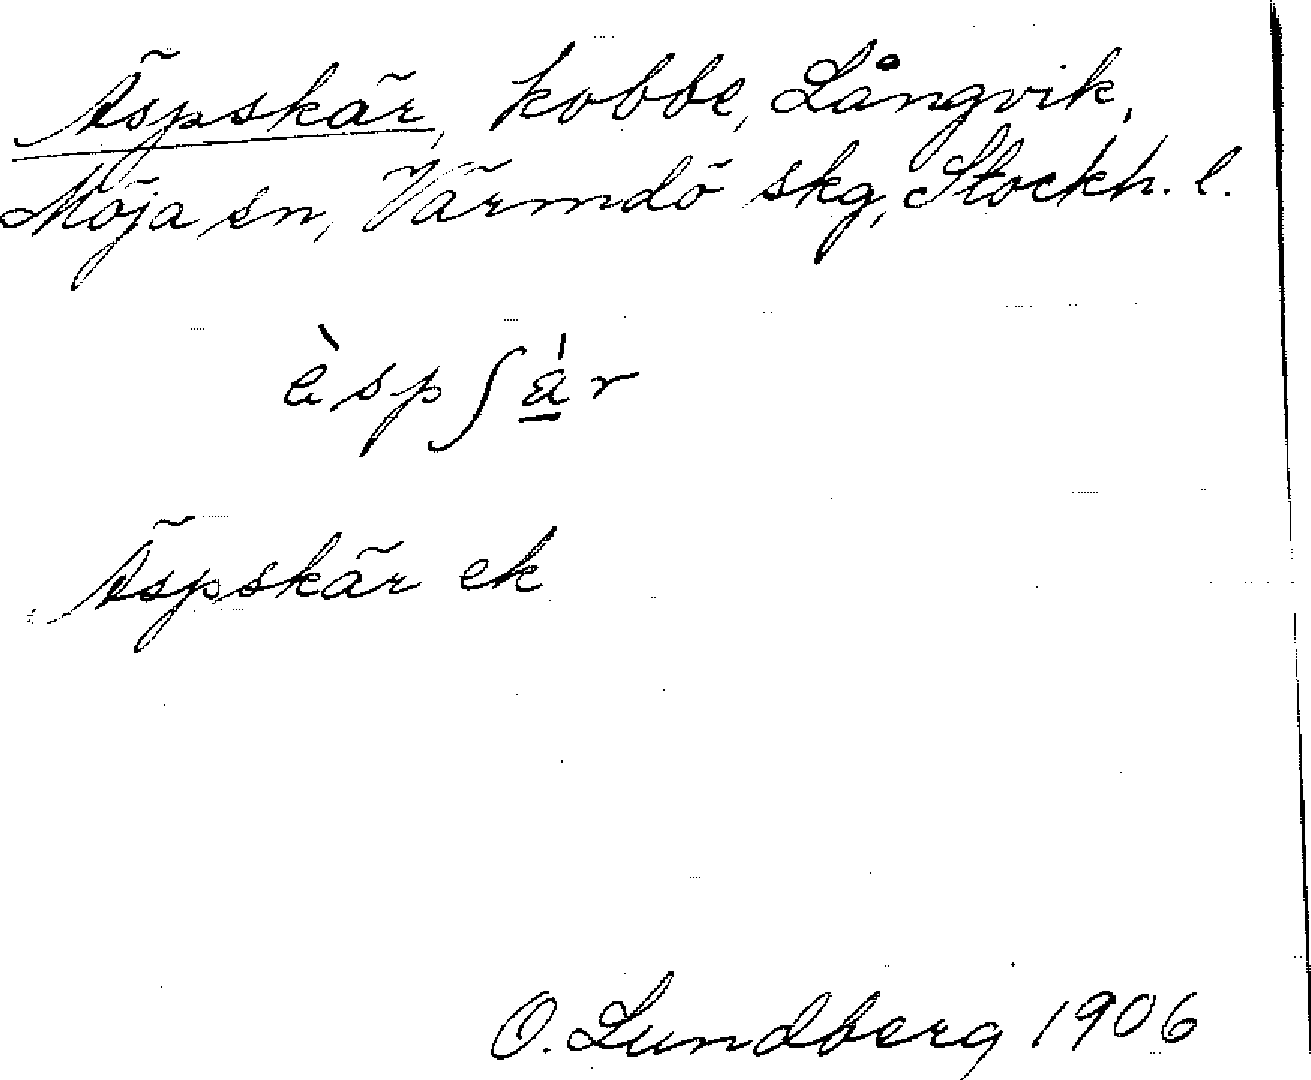 Äspskär, kobbe, Långvik,
Möja sn, Värmdö skg, Stockh. l.
èspʃä̱́r
Äspskär ek
O. Lundberg 1906